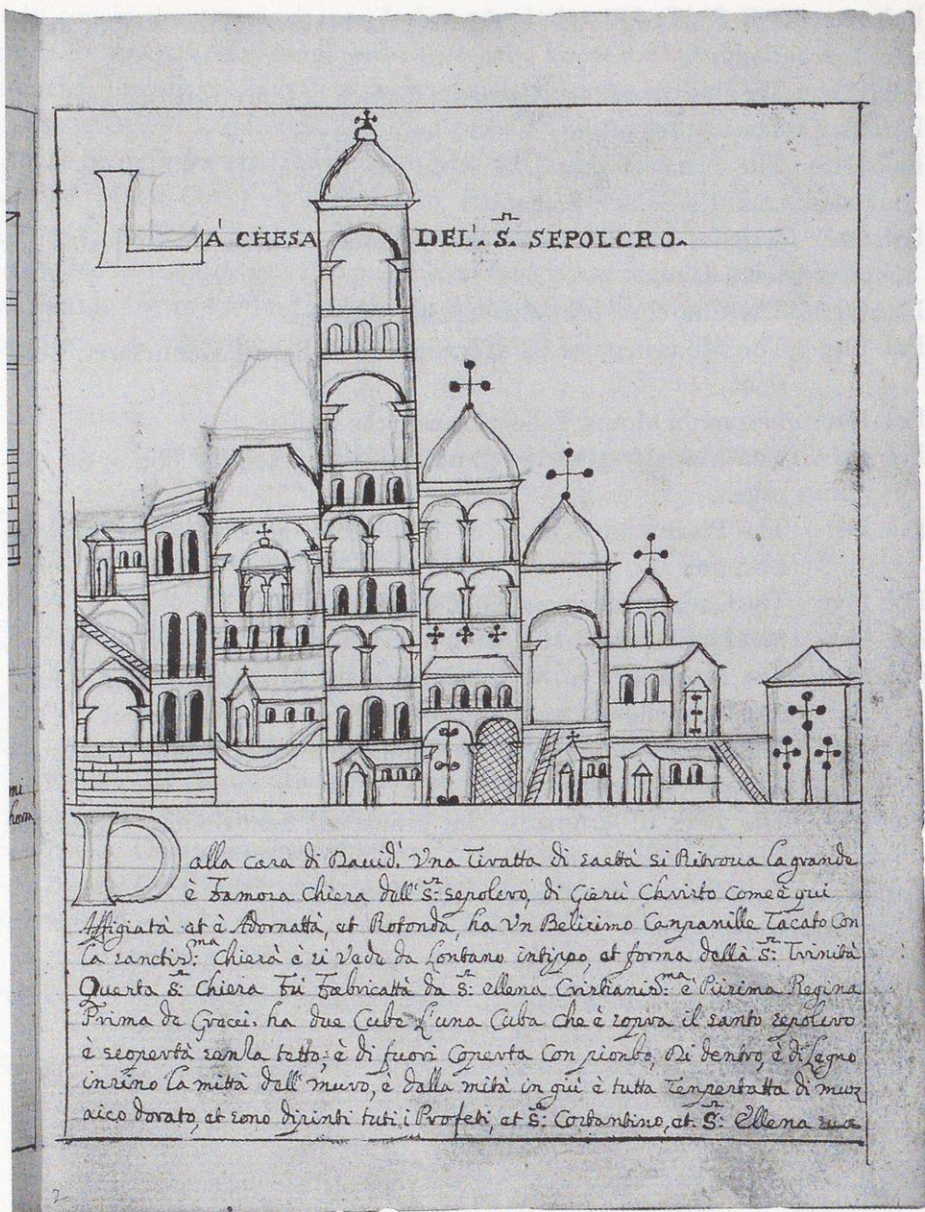 LÁ CHESA DEL. S. SEPOLCRO.
Dalla cara di Dauid. Vna Tiratta di saettà si Ritroua la grande
è Famosa Chiesa dell' S: sepolcro, di Giesù Christo come è qui
Affigiatà et è Adornattà, et Rotondà, ha Vn Belisimo Canpanille Tacato Con
La sanctis:ma Chiesà è si Vede da Lontano intippo, et forma dellà S: Trinità
Questa S: Chiesa Fù Fabricattà da S: ellena Cristianis:ma è Piisima Regina
Prima de Greci. ha due Cube L'una Cuba che è sopra il santo sepolcro
è scopertà senza tetto, è di fuori Coperta Con pionbo, Di dentro, è di Legno
insino La mittà dell' muro, è dalla mità in giù è tutta Tenpestatta di muz
aico dorato, et sono dipinti tuti i Profeti, et S: Costantino, et. S: Ellena sua
mi
2